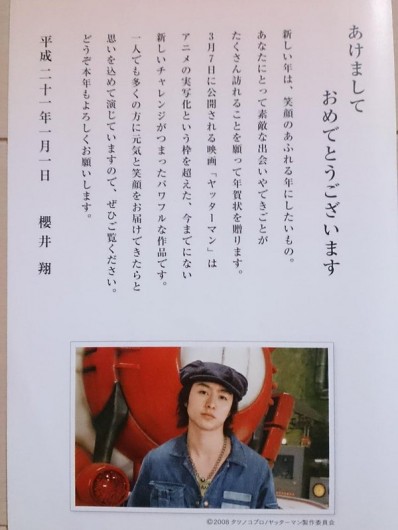 あけまして
おめでとうございます
新しい年は、笑顔のあふれる年にしたいもの。
あなたにとって素敵な出会いやできごとが
たくさん訪れることを願って年賀状を贈ります。
3月7日に公開される映画「ヤッターマン」は
アニメの実写化という枠を超えた、今までにない
新しいチャレンジがつまったパワフルな作品です。
一人でも多くの方に元気と笑顔をお届けできたらと
思いを込めて演じていますので、ぜひご覧ください。
どうぞ本年もよろしくお願いします。
平成二十一年一月一日 櫻井 翔
©2008 タツノコプロ/ヤッターマン製作委員会